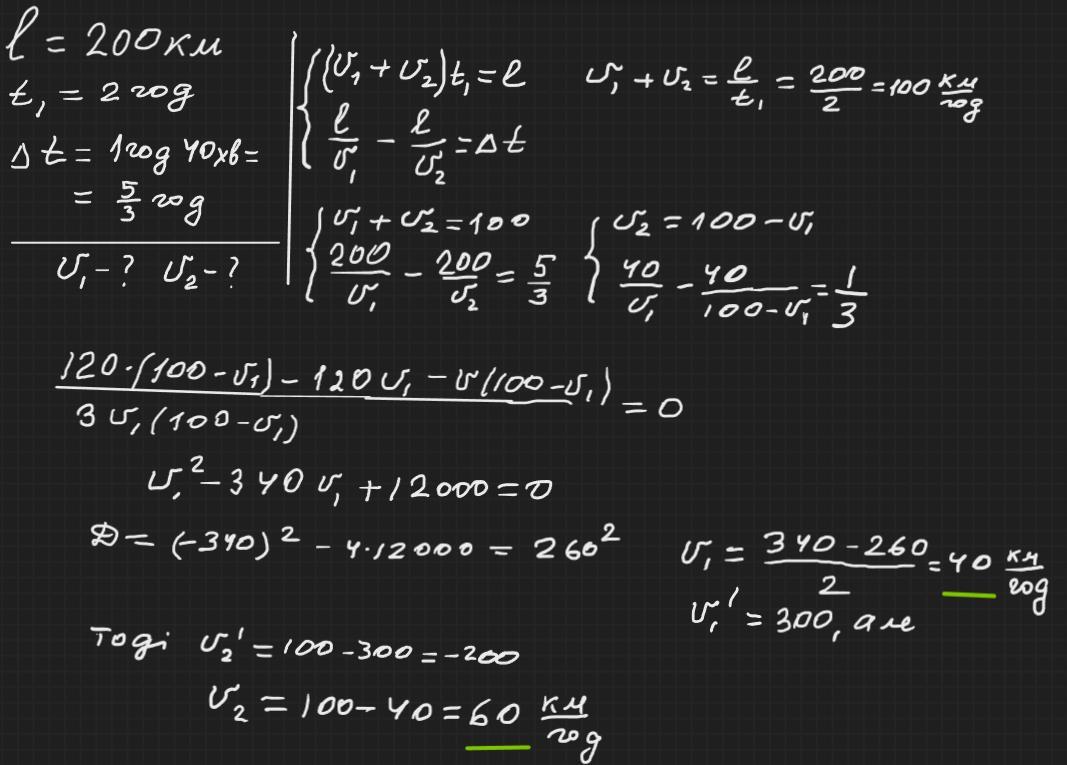 l = 200 км
t₁ = 2 год
Δt = 1 год 40 хв =
= 5/3 год
υ₁ - ? υ₂ - ?
{ (υ₁ + υ₂)t₁ = l
l/υ₁ - l/υ₂ = Δt
υ₁ + υ₂ = l/t₁ = 200/2 = 100 км/год
{ υ₁ + υ₂ = 100
200/υ₁ - 200/υ₂ = 5/3
{ υ₂ = 100 - υ₁
40/υ₁ - 40/(100 - υ₁) = 1/3
(120·(100 - υ₁) - 120υ₁ - υ(100 - υ₁))/(3υ₁(100 - υ₁)) = 0
υ₁² - 340υ₁ + 12000 = 0
D = (-340)² - 4·12000 = 260²
υ₁ = (340 - 260)/2 = 40 км/год
υ₁' = 300, але
Тоді υ₂' = 100 - 300 = -200
υ₂ = 100 - 40 = 60 км/год